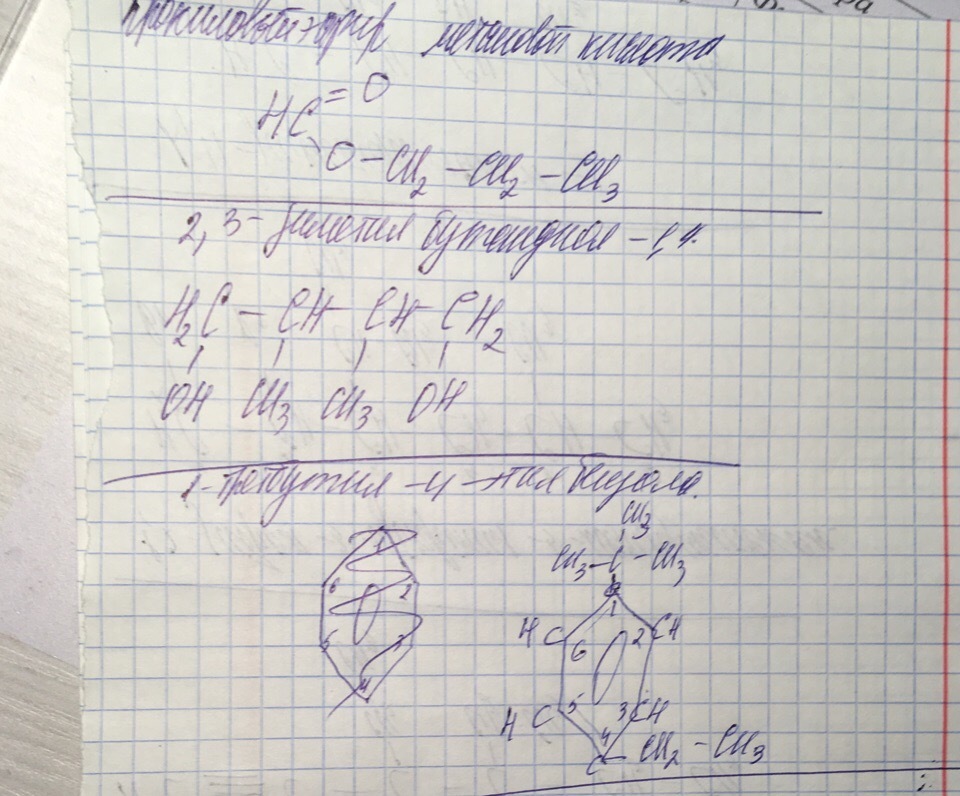 Пропиловый эфир метановой кислоты
HC=O
O-CH2-CH2-CH3
2,3-диметил бутандиол-1,4.
H2C-CH-CH-CH2
OH CH3 CH3 OH
1-третбутил-4-этил бензола.
CH3
CH3-C-CH3
1
6 2
5 3
4
C
1
HC 6 2 CH
HC 5 3 CH
4
C-CH2-CH3